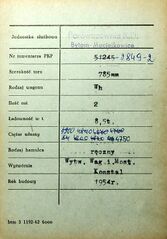 Jednostka służbowa Parowozownia Kl.I.
Bytom-Maciejkowice
Nr inwentarza PKP 51245-2849-2
Szerokość toru 785mm
Rodzaj wagonu Wh
Ilość osi 2
Ładowność w t. 8,5t.
Ciężar własny 4750
Rodzaj hamulca ręczny
Wytwórnia Wytw. Wag. i Most.
Konstal
Rok budowy 1954r.